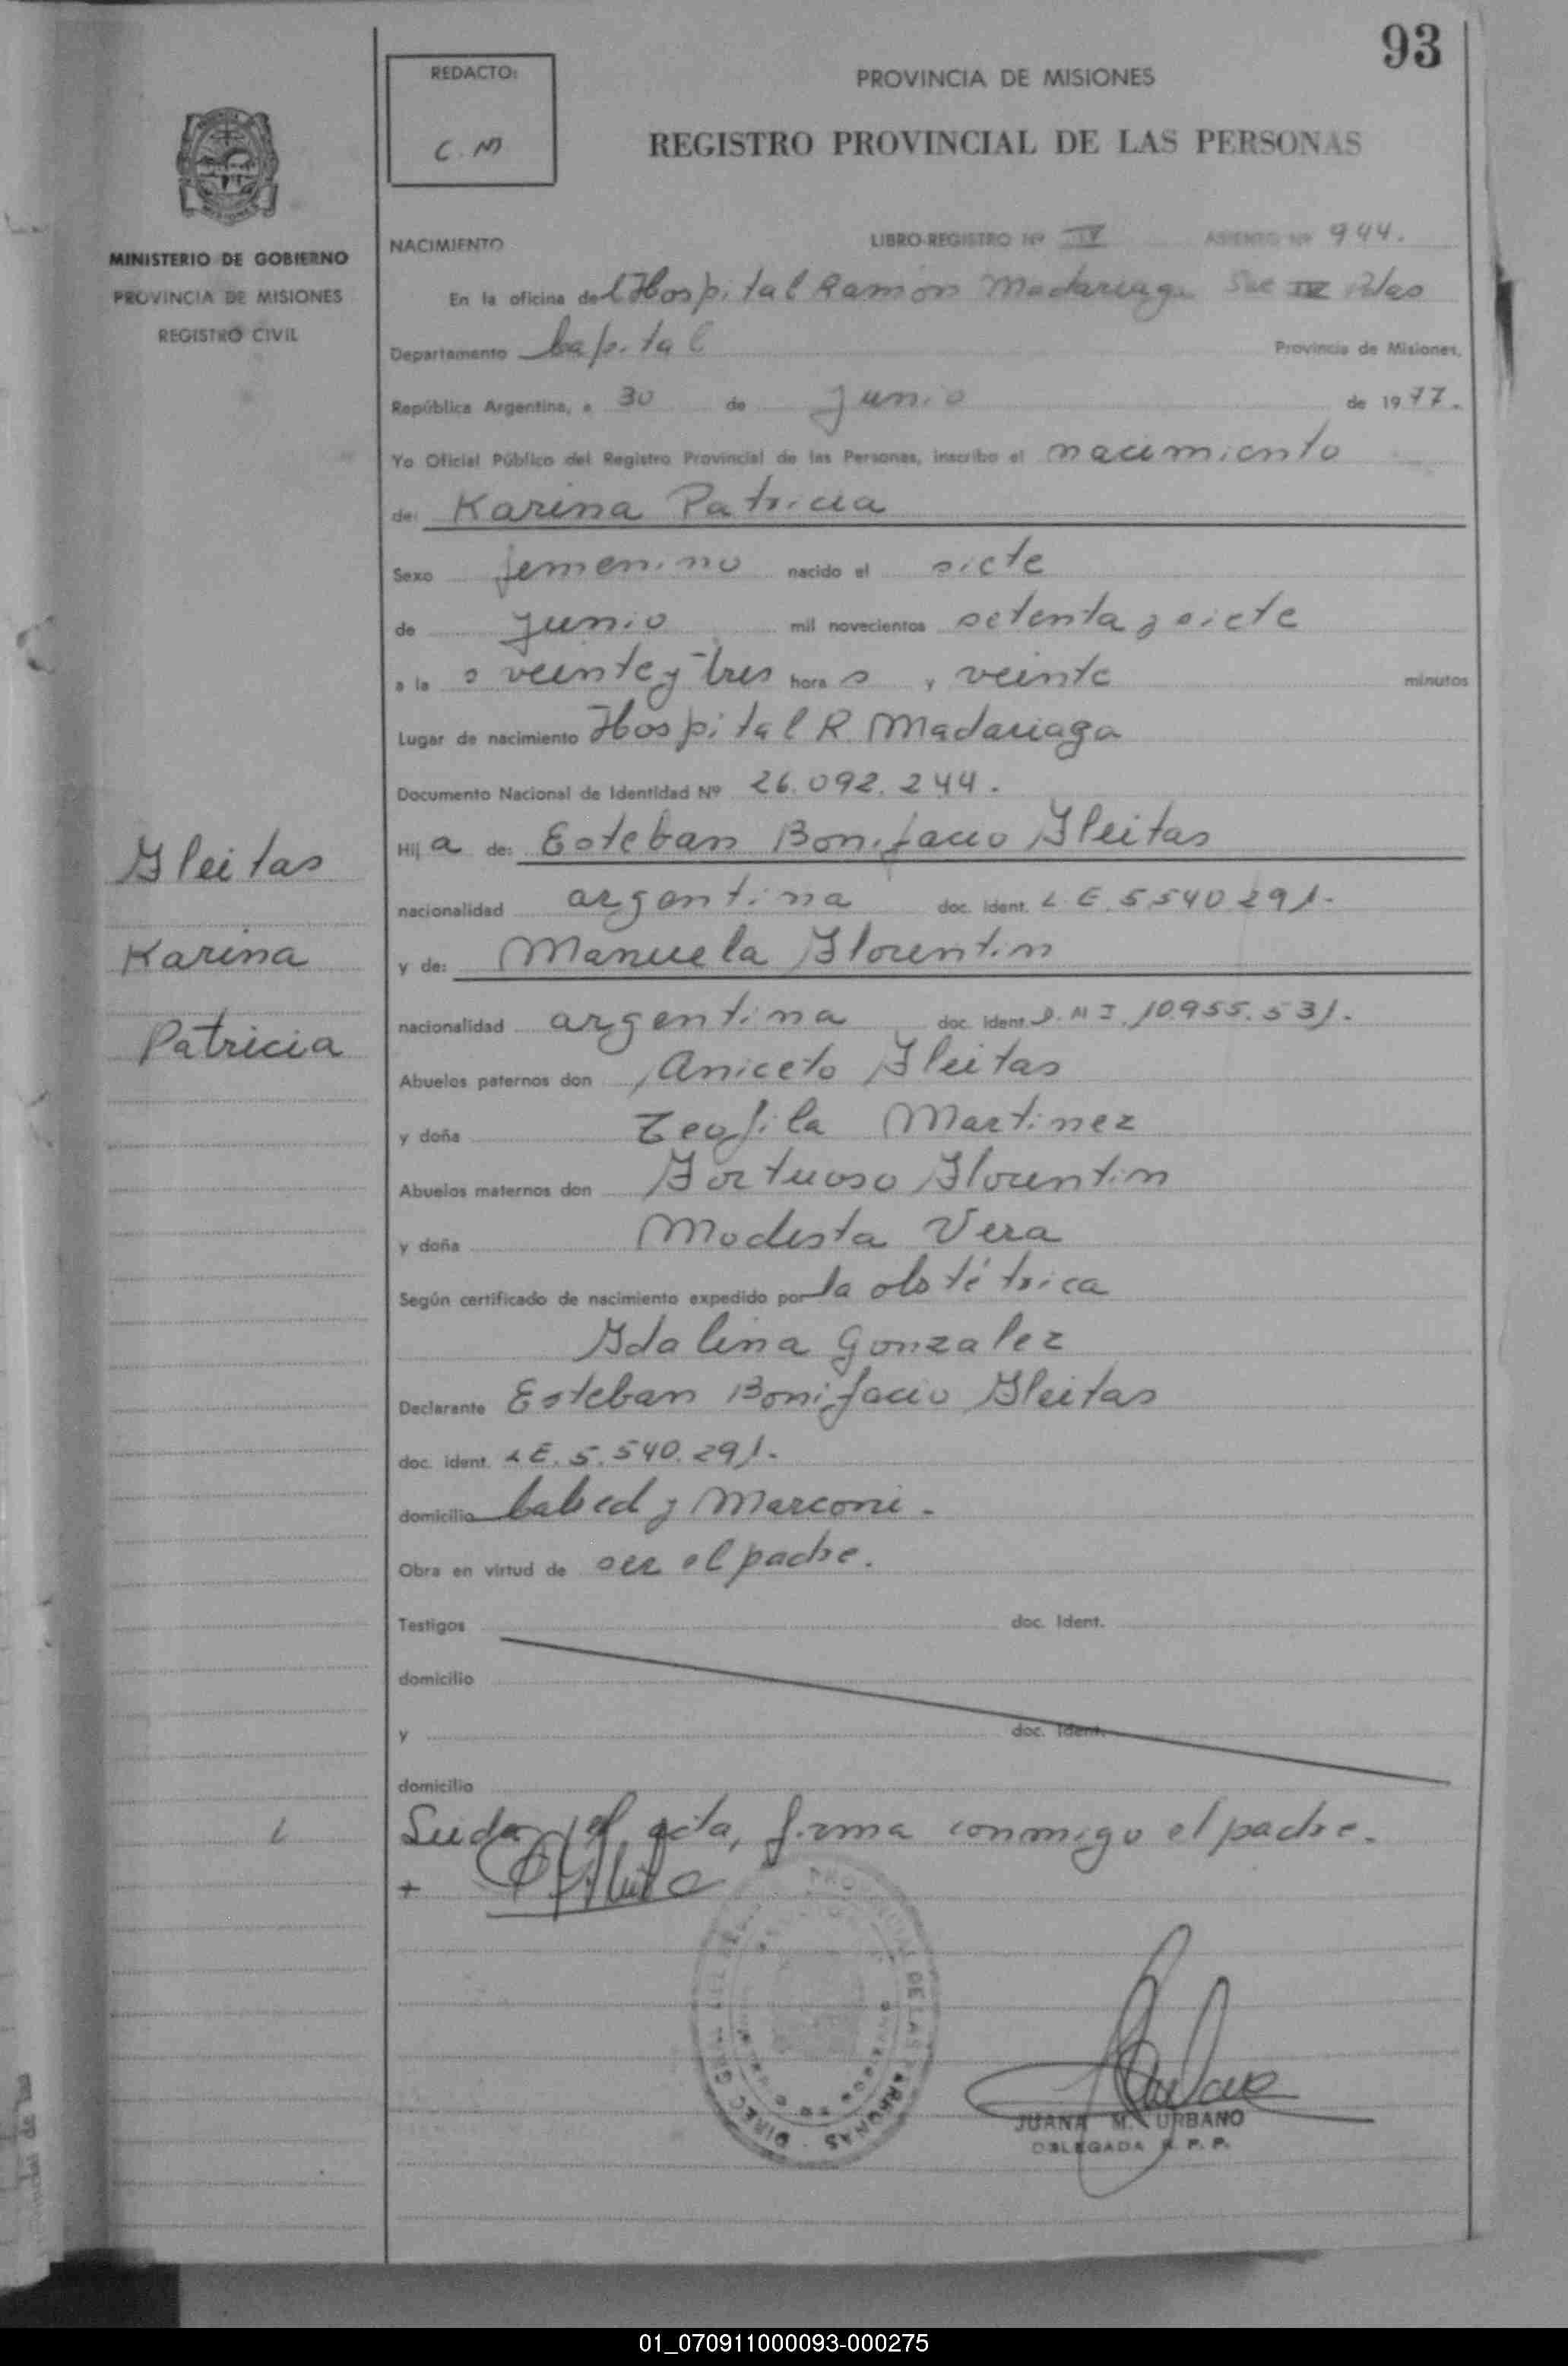 93
REDACTO:
C. M
PROVINCIA DE MISIONES
REGISTRO PROVINCIAL DE LAS PERSONAS
MINISTERIO DE GOBIERNO
PROVINCIA DE MISIONES
REGISTRO CIVIL
NACIMIENTO LIBRO-REGISTRO Nº IV ASIENTO Nº 944.
En la oficina del Hospital Ramón Madariaga Sec IV Pdas
Departamento Capital Provincia de Misiones,
República Argentina, a 30 de Junio de 1977.
Yo Oficial Público del Registro Provincial de las Personas, inscribo el nacimiento
de: Karina Patricia
Sexo femenino nacido el siete
de Junio mil novecientos setenta y siete
a la s veinte y tres hora s y veinte minutos
Lugar de nacimiento Hospital R. Madariaga
Documento Nacional de Identidad Nº 26.092.244.
Hij a de: Esteban Bonifacio Gleitas
nacionalidad argentina doc. ident. L.E. 5.540.291.
y de: Manuela Florentin
nacionalidad argentina doc. ident. D.M.I. 10.955.531.
Abuelos paternos don Aniceto Gleitas
y doña Teofila Martinez
Abuelos maternos don Fortuoso Florentin
y doña Modesta Vera
Según certificado de nacimiento expedido por la obstétrica
Idalina Gonzalez
Declarante Esteban Bonifacio Gleitas
doc. ident. L.E. 5.540.291.
domicilio Cabed y Marconi.
Obra en virtud de ser el padre.
Testigos doc. Ident.
domicilio
y doc. Ident.
domicilio
Leida el acta, firma conmigo el padre.
Gleitas
Karina
Patricia
JUANA M. URBANO
DELEGADA R. P. P.
01_070911000093-000275